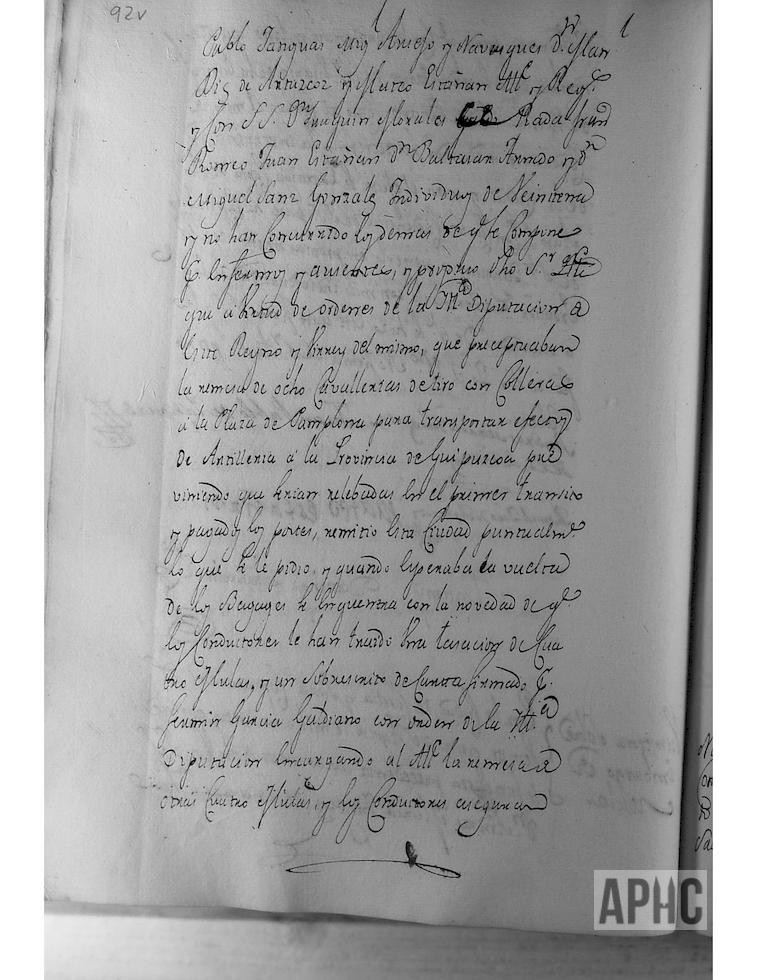 92v
Pablo Tanguas Mig.l Amejo y Navasques D.n Man.l
Diz de Antuzcoz y Mateo Estañan Alc.e y Reg.s
y Jon S.S. D.n Joaquin Morales Rada fran.co
Romeo Juan Estañan D.n Baltasar Arnedo y D.n
Miguel Sanz Gonzalez Individuos de Veintena
y no han Concurrido los demas de q.e se Compone
P. Enfermos y ausentes, y propuso dho S.r Alc.e
que a birtud de ordenes de la Ill.ma Diputacion de
este Reyno y birrey del mismo, que preceptuaban
la remesa de ocho Cavallerias de tiro con Colleras
a la Plaza de Pamplona para transportar efectos
de Artilleria a la Provincia de Guipuzcoa pre
viniendo que serian relebadas en el primer transito
y pagados los portes, remitio esta Ciudad puntualm.te
lo que se le pidio, y quando esperaba la vuelta
de los Bagages se encuentra con la novedad de q.e
los Conductores le han traido una tasacion de Cua
tro Mulas, y un sobrescrito de Carta firmado P.
Fermin Garcia Galdiano con orden de la Ill.ma
Diputacion encargando al Alc.e la remesa de
otras Cuatro Mulas, y los Conductores aseguran
APHC